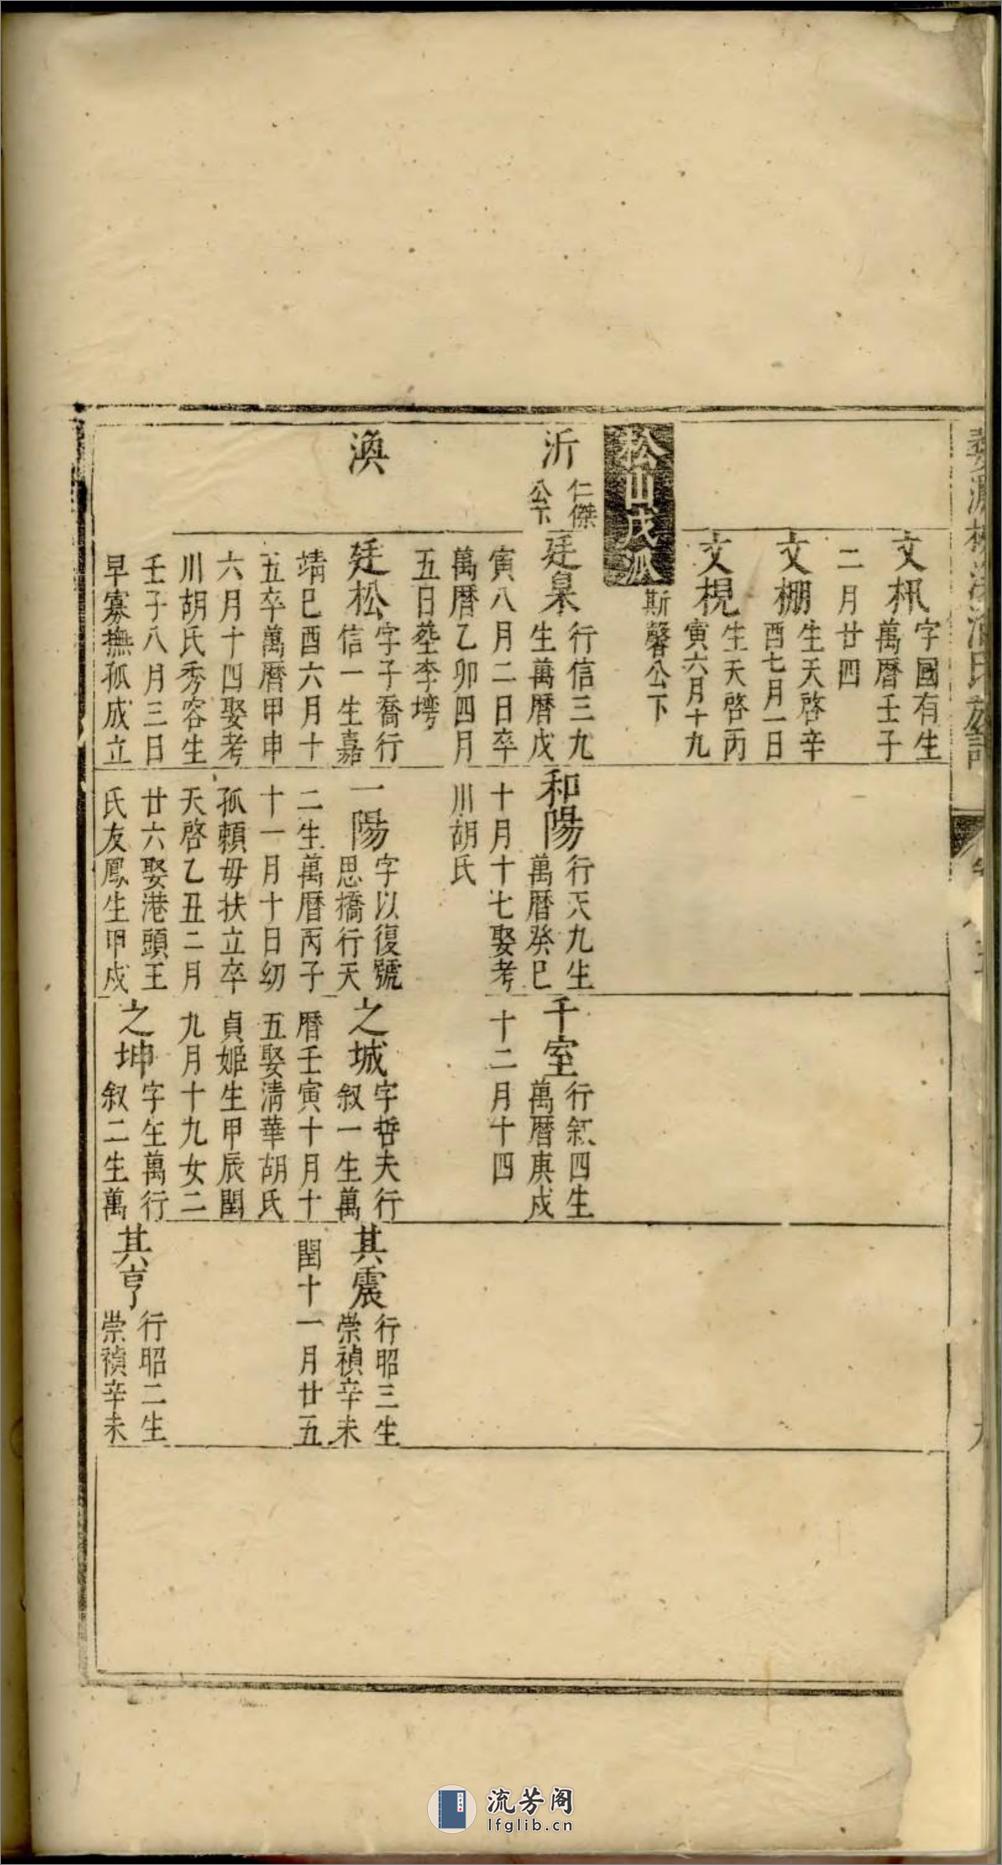 文枫
字國有生
萬曆壬子
二月廿四
文棚
生天啓辛
酉七月一日
文梘
生天啓丙
寅六月十九
松山茂派
斯馨公下
沂
仁傑
公下
廷臯
行信三九
生萬曆戊
寅八月二日卒
萬曆乙卯四月
五日塟李塆
渙
廷松
字子喬行
信一生嘉
靖己酉六月十
五卒萬曆甲申
六月十四娶考
川胡氏秀容生
壬子八月三日
早寡撫孤成立
和陽
行天九生
萬曆癸巳
十月十七娶考
川胡氏
一陽
字以復號
思橋行天
二生萬曆丙子
十一月十日幼
孤賴毋扶立卒
天啓乙丑二月
廿六娶港頭王
氏友鳳生甲戌
千室
行叙四生
萬曆庚戌
十二月十四
之城
字哲夫行
叙一生萬
曆壬寅十月十
五娶清華胡氏
貞姬生甲辰閏
九月十九女二
之坤
字生萬行
叙二生萬
其震
行昭三生
崇禎辛未
閏十一月廿五
其亨
行昭二生
崇禎辛未
流芳阁
lfglib.cn